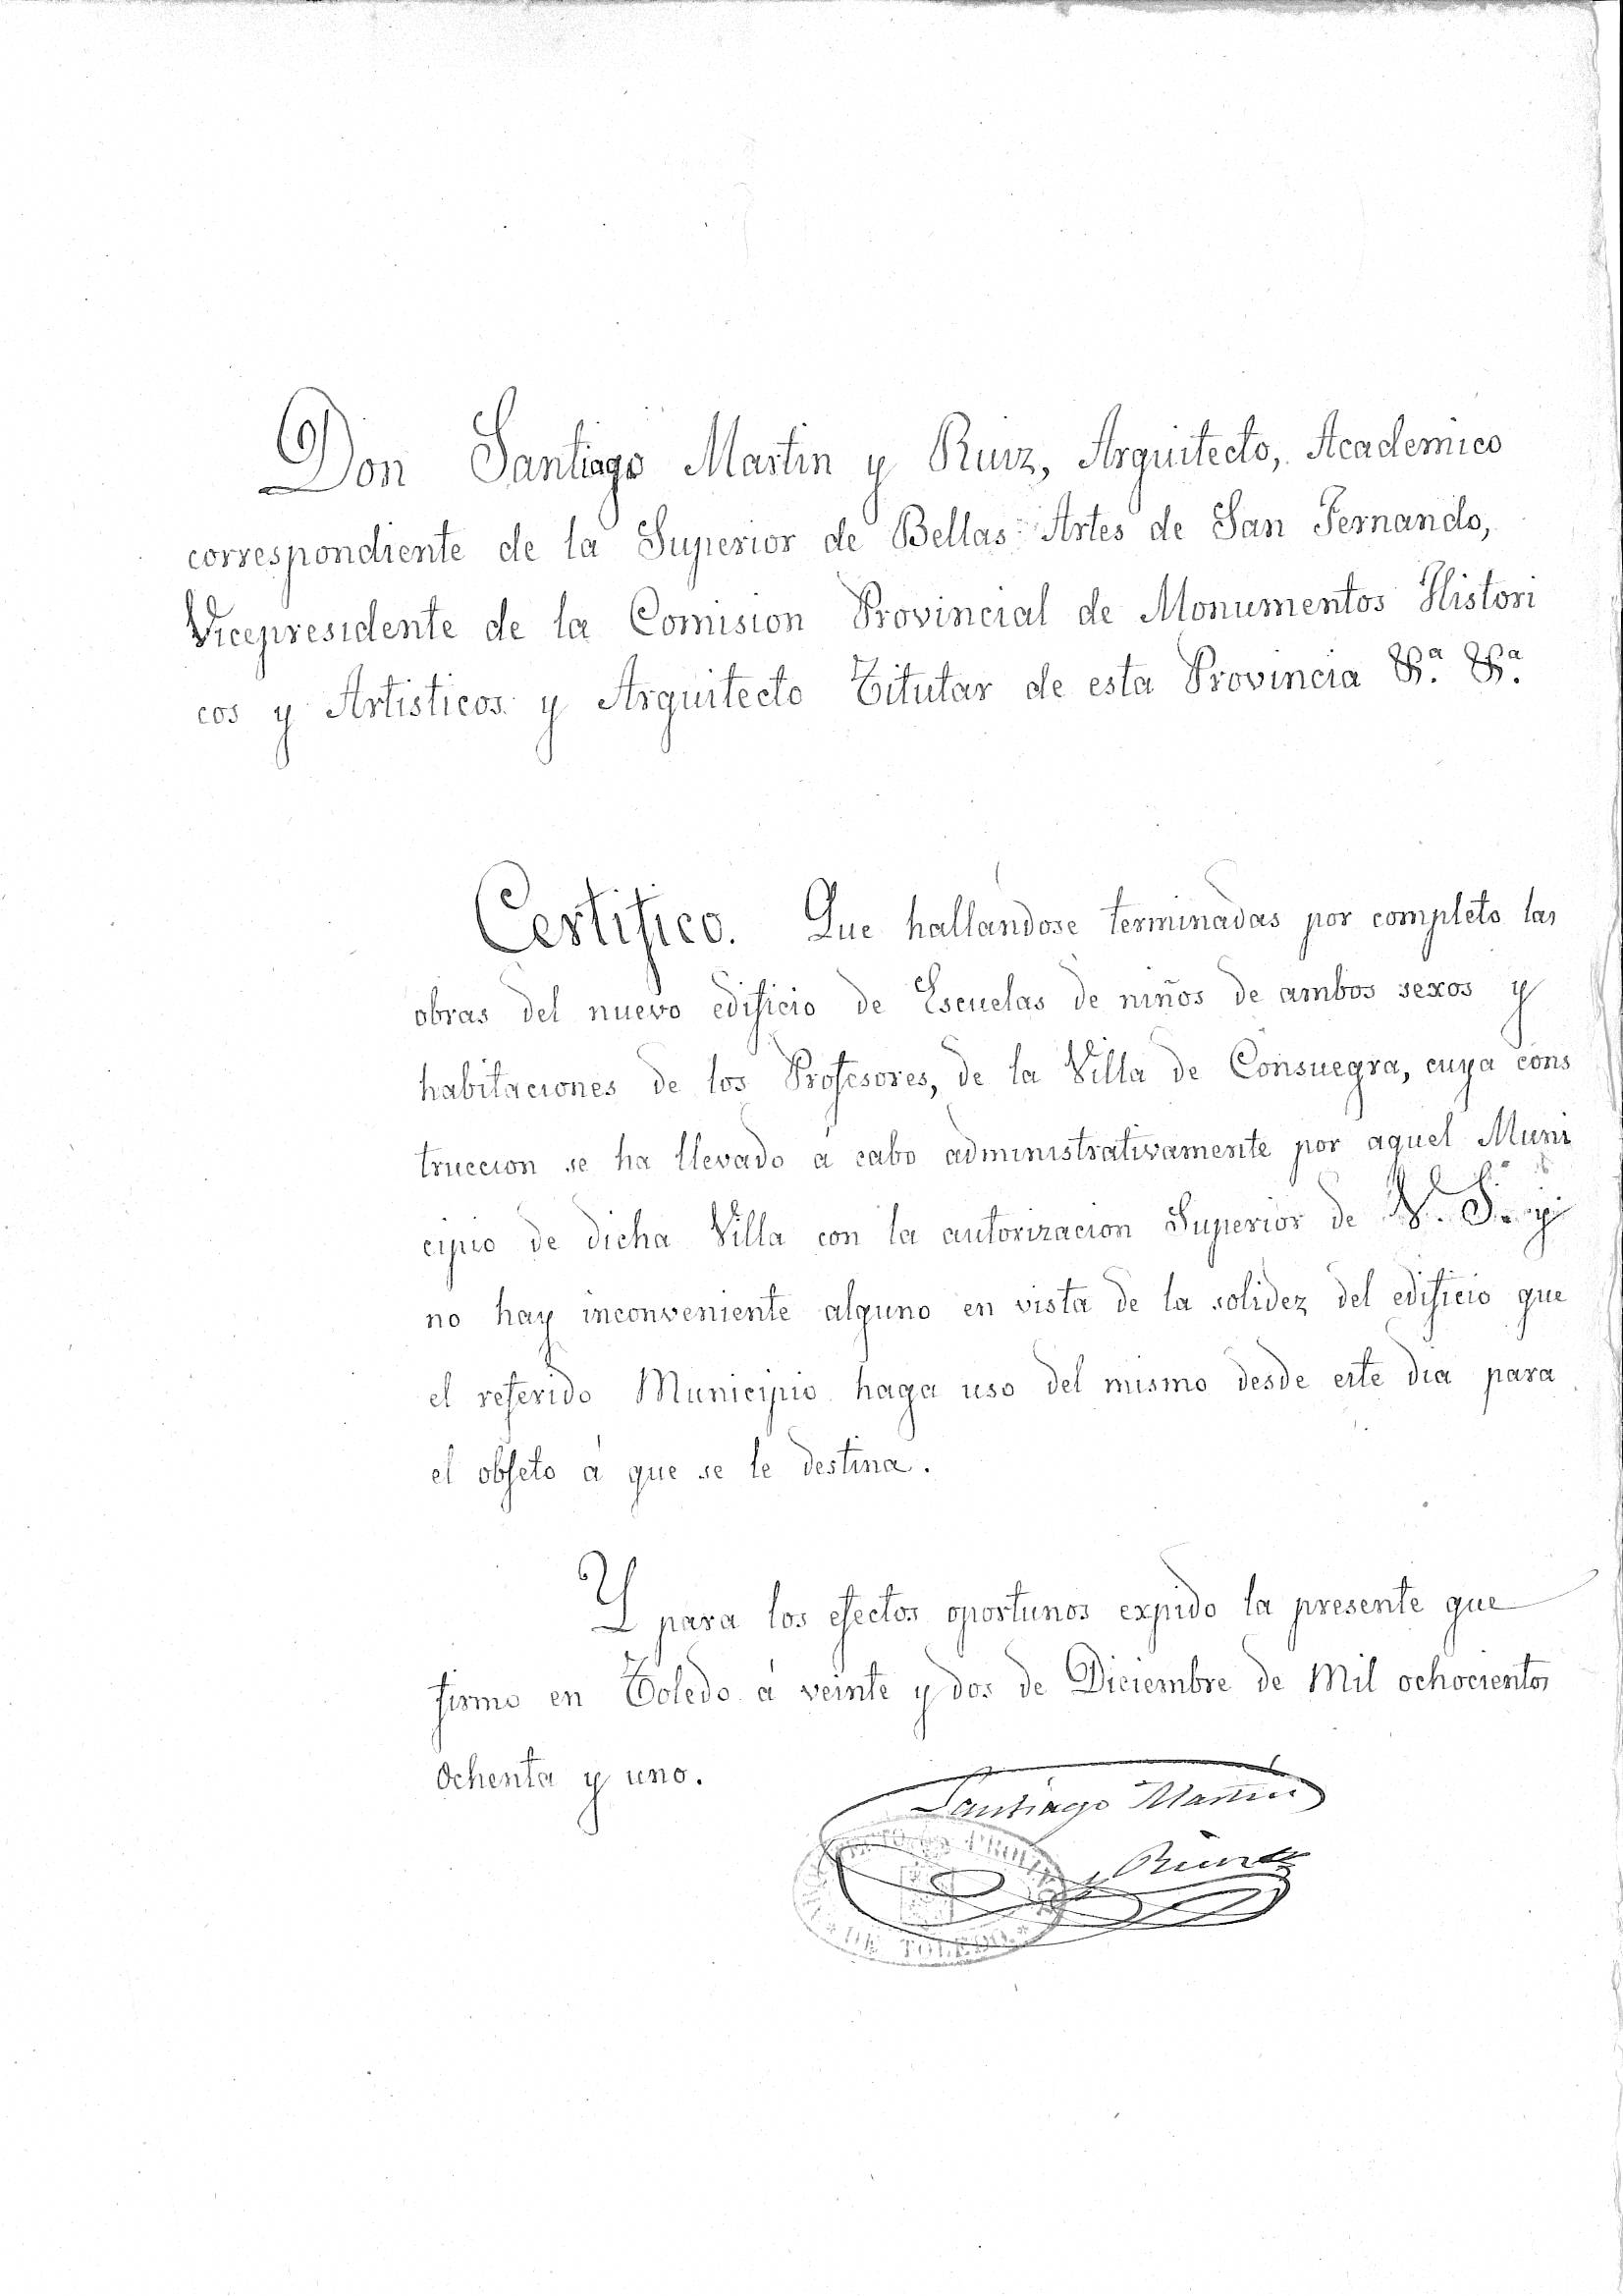 Don Santiago Martin y Ruiz, Arquitecto, Academico
correspondiente de la Superior de Bellas Artes de San Fernando,
Vicepresidente de la Comision Provincial de Monumentos Histori
cos y Artisticos y Arquitecto Titutar de esta Provincia &.ª &.ª
Certifico. Que hallándose terminadas por completo las
obras del nuevo edificio de Escuelas de niños de ambos sexos y
habitaciones de los Profesores, de la Villa de Consuegra, cuya cons
truccion se ha llevado á cabo administrativamente por aquel Muni
cipio de dicha Villa con la autorizacion Superior de V. S. y
no hay inconveniente alguno en vista de la solidez del edificio que
el referido Municipio haga uso del mismo desde este dia para
el objeto á que se le destina.
Y para los efectos oportunos expido la presente que
firmo en Toledo á veinte y dos de Diciembre de Mil ochocientos
Ochenta y uno.
Santiago Martin
y Ruiz
DE TOLEDO